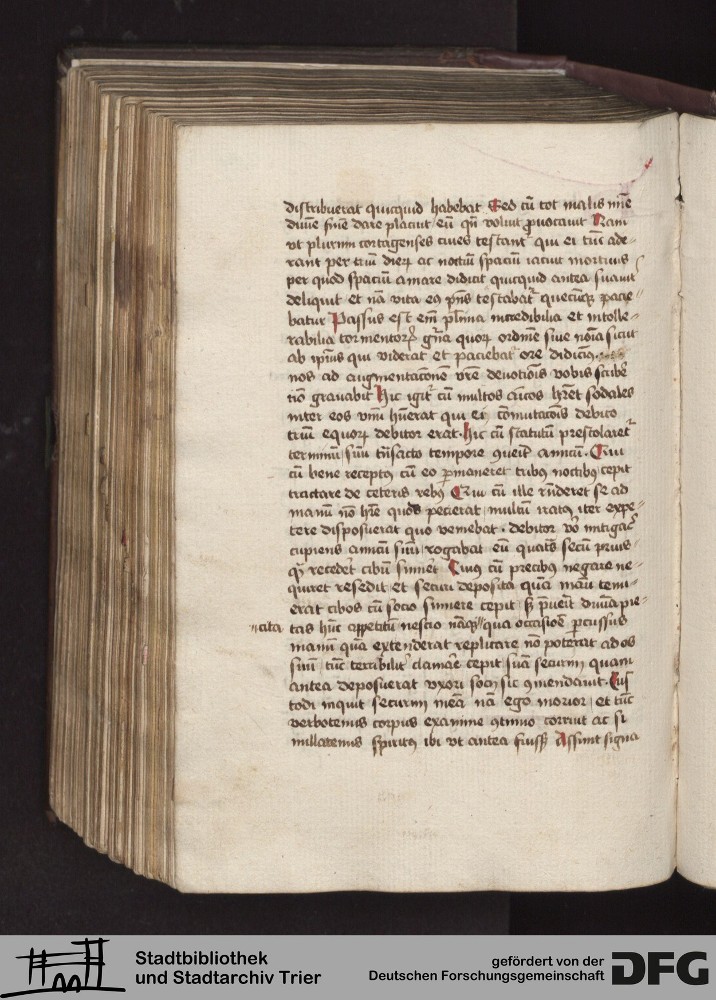 distribuerat quicquid habebat Sed cū tot malis mīe
diuīe fine dare placuit eū qn̄ voluit ꝓuocauit Nam
vt plurimi cortagenses ciues testant᷑ qui ei tūc ade-
rant per triū dieꝝ ac noctiū spaciū iacuit mortuus
per quod spaciū amare didicit quicquid antea suauit᷑
deliquit et nā vita eā p̄ns testabat᷑ quecūqꝫ pacie-
batur Passus est em̄ plīma incredibilia et intolle-
rabilia tormentoꝝ gn̄a quoꝝ ordinē siue noīa sicut
ab ip̄ius qui viderat et paciebat᷑ ore didicimꝰ
nos ad augmentacōnem vr̄e deuotiōis vobis scribē
nō grauabit Hic igit᷑ cū multos amicos hr̄et sodales
inter eos vnū hūerat qui ei cōmutacōis debito
triū equoꝝ debitor erat Hic cū statutū prestolaret᷑
terminū suū trāsacto tempore ꝯueīt amicū. Qui
cū bene receptꝰ cū eo ꝑmaneret tribꝰ noctibꝰ cepit
tractare de ceteris rebꝰ Qui cū ille rn̄deret se ad
manū nō hr̄e quod pecierat multū iratꝰ iter expe-
tere disposuerat quo veniebat. debitor v̄o mitigare
cupiens amicū suū rogabat eū quatīs secū prius-
qꝫ recedet cibū sūmet Cuius cū precibꝰ negare ne-
quiret resedit et securi deposita quā manu tenu-
erat cibos cū socio sumere cepit sꝫ p̄ueīt diuīa pie-
"cita tas hūc appetitū nescio nāqꝫ "qua occasiōe ꝑcussus
manū quā extenderat replicare nō poterat ad os
suū tūc terribilit᷑ clamare cepit suā securim quam
antea deposuerat vxori socij sic ꝯmendauit. Cus
todi inquit securim meā nā ego morior et tūc
verbotenus corpus exanime ꝯtinuo corruit ac si
nullatenus spiritꝰ ibi vt antea fuisset Assunt signa
Stadtbibliothek
und Stadtarchiv Trier
gefördert von der
Deutschen Forschungsgemeinschaft
DFG